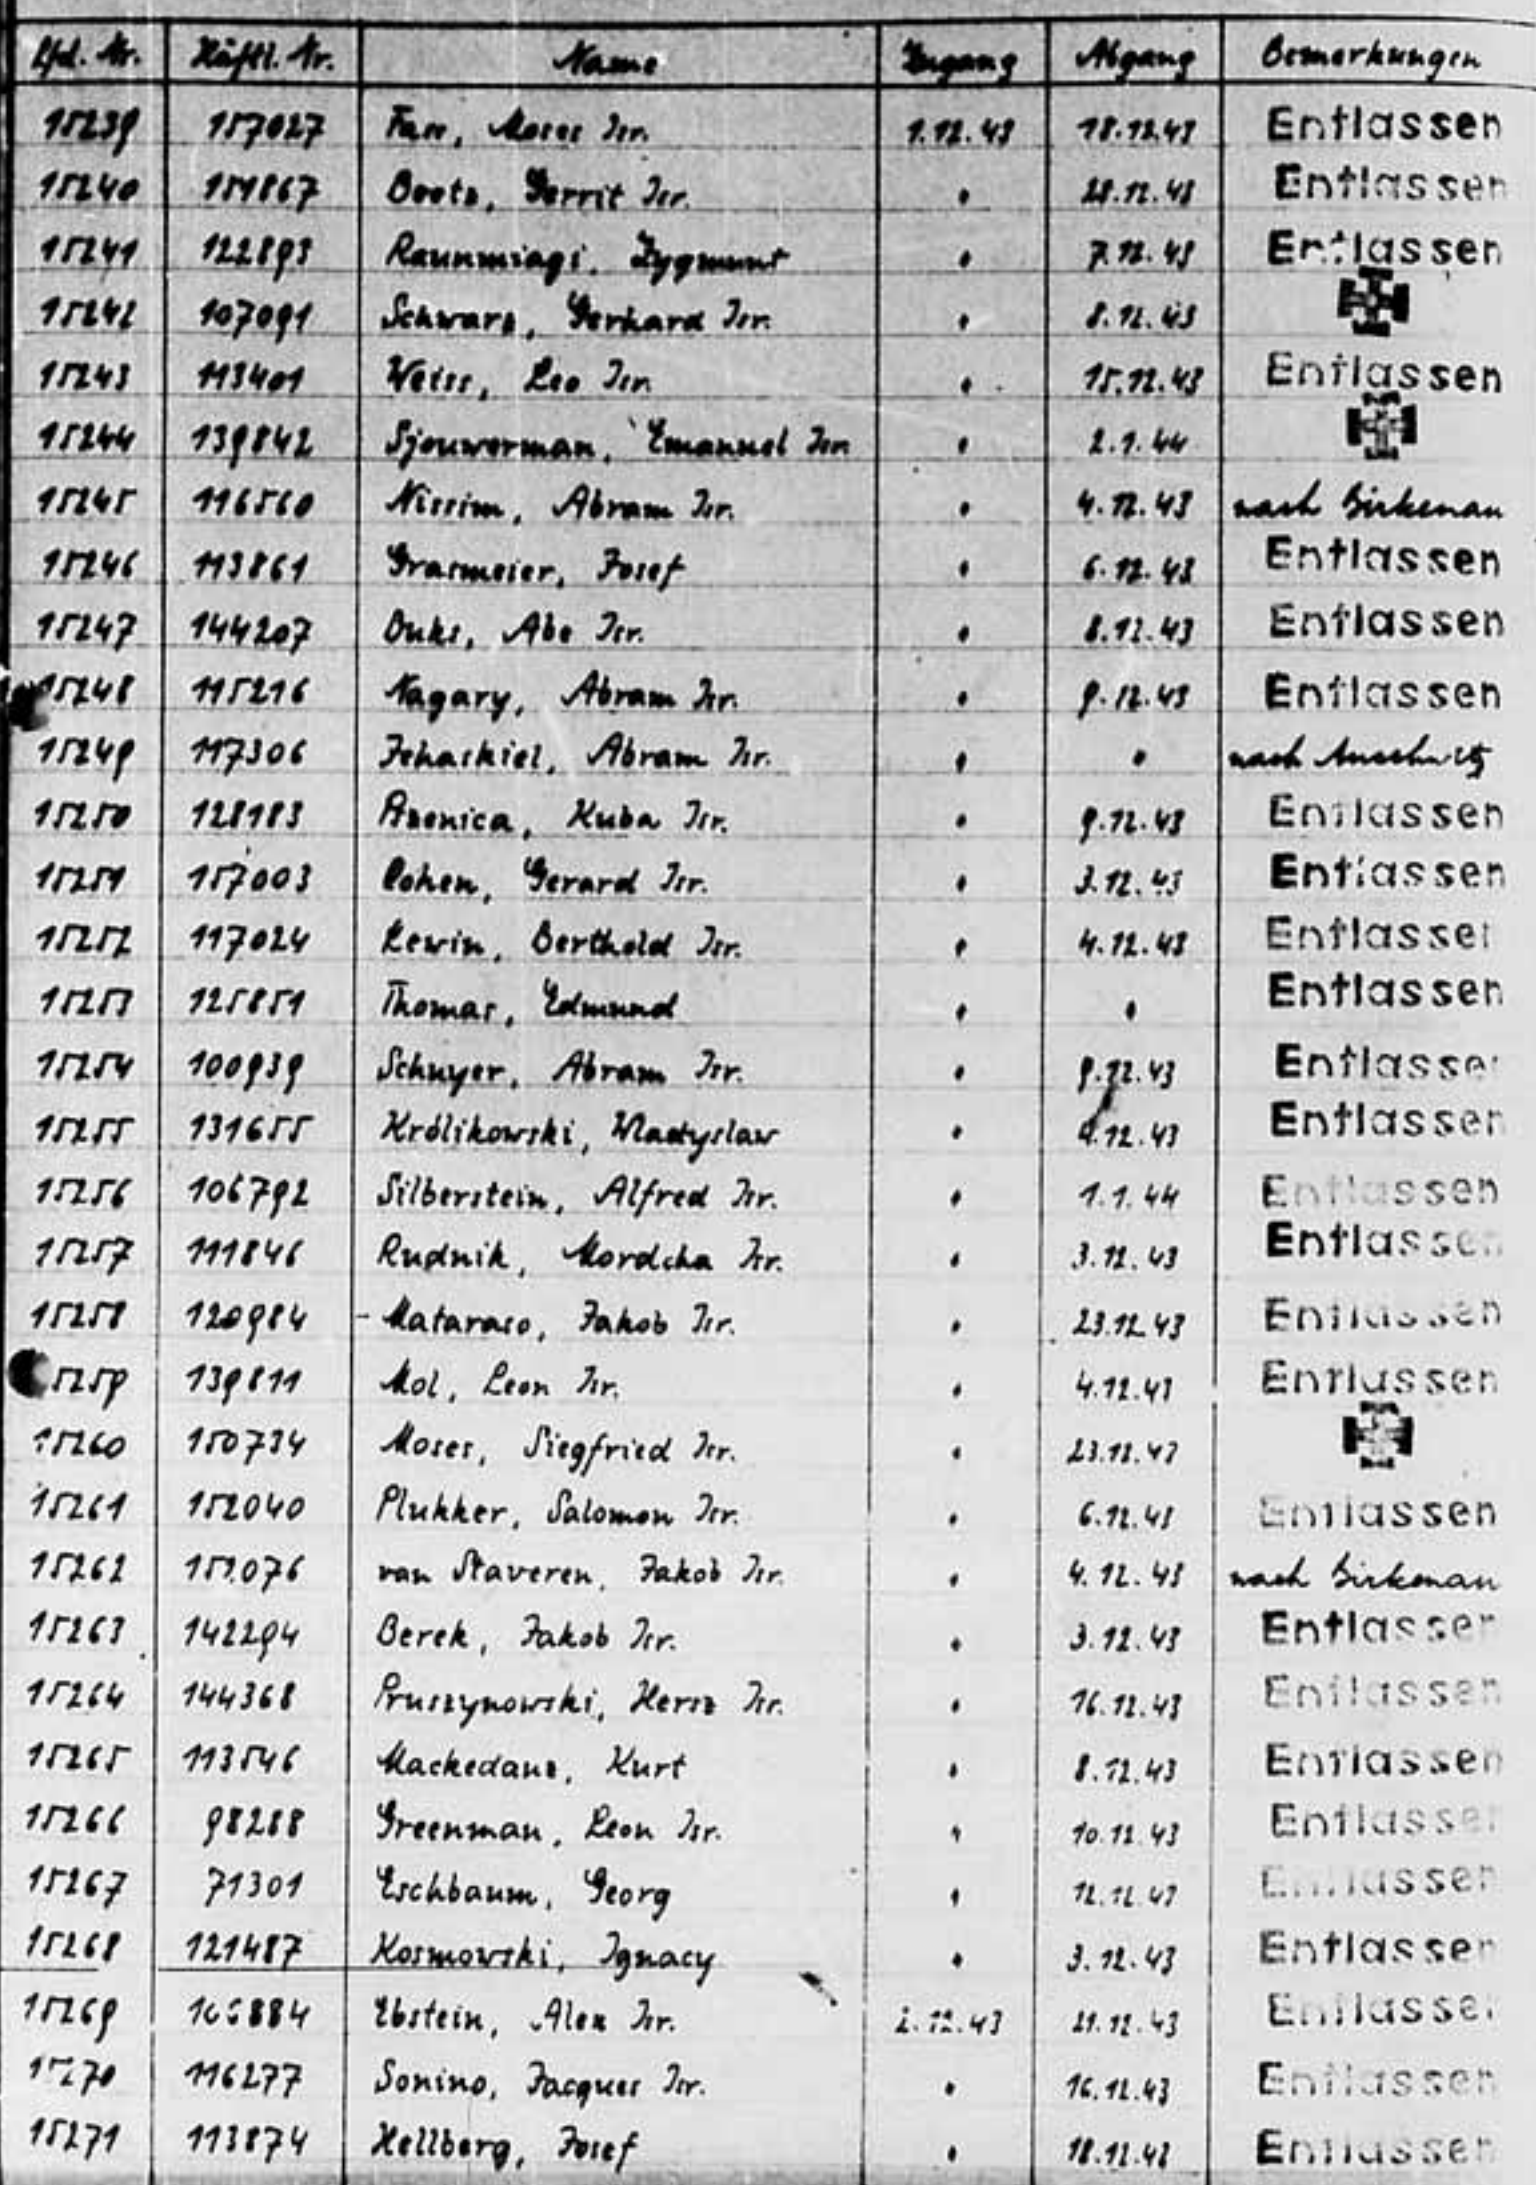 Lfd. Nr. Häftl. Nr. Name Zugang Abgang Bemerkungen
15239 157027 Moses Isr. 1.12.43 18.12.43 Entlassen
15240 151867 Boots, Gerrit Isr. " 28.12.43 Entlassen
15241 122893 Raunmiagi, Zygmunt " 7.12.43 Entlassen
15242 107091 Schwarz, Gerhard Isr. " 8.12.43
15243 113401 Weiss, Leo Isr. " 15.12.43 Entlassen
15244 139842 Sjouwerman, Emanuel Isr. " 2.1.44
15245 116560 Nissim, Abram Isr. " 4.12.43 nach Birkenau
15246 113861 Grasmeier, Josef " 6.12.43 Entlassen
15247 144207 Duks, Abe Isr. " 8.12.43 Entlassen
15248 115216 Nagary, Abram Isr. " 9.12.43 Entlassen
15249 117306 Jehaskiel, Abram Isr. " " nach Auschwitz
15250 128183 Prenica, Kuba Isr. " 9.12.43 Entlassen
15251 157003 Cohen, Gerard Isr. " 3.12.43 Entlassen
15252 117024 Lewin, Berthold Isr. " 4.12.43 Entlassen
15253 125851 Thomas, Edmund " " Entlassen
15254 100939 Schuyer, Abram Isr. " 9.12.43 Entlassen
15255 131655 Królikowski, Wladyslaw " 4.12.43 Entlassen
15256 106792 Silberstein, Alfred Isr. " 1.1.44 Entlassen
15257 111846 Rudnik, Mordcha Isr. " 3.12.43 Entlassen
15258 120984 Mataraso, Jakob Isr. " 23.12.43 Entlassen
15259 139811 Mol, Leon Isr. " 4.12.43 Entlassen
15260 150734 Moses, Siegfried Isr. " 23.12.43
15261 152040 Plukker, Salomon Isr. " 6.12.43 Entlassen
15262 152076 van Staveren, Jakob Isr. " 4.12.43 nach Birkenau
15263 142294 Berek, Jakob Isr. " 3.12.43 Entlassen
15264 144368 Pruszynowski, Hersz Isr. " 16.12.43 Entlassen
15265 113546 Mackedanz, Kurt " 8.12.43 Entlassen
15266 98288 Greenman, Leon Isr. " 10.12.43 Entlassen
15267 71301 Eschbaum, Georg " 12.12.43 Entlassen
15268 121487 Kosmowski, Ignacy " 3.12.43 Entlassen
15269 106884 Ebstein, Alex Isr. 2.12.43 21.12.43 Entlassen
15270 116277 Sonino, Jacques Isr. " 16.12.43 Entlassen
15271 113874 Hellberg, Josef " 18.12.43 Entlassen